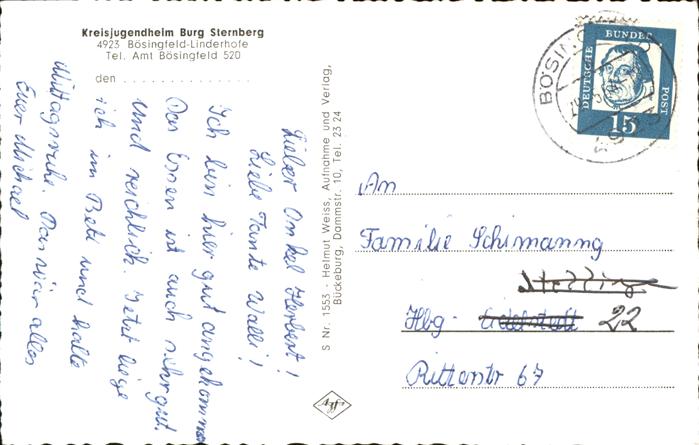 Kreisjugendheim Burg Sternberg
4923 Bösingfeld-Linderhofe
Tel. Amt Bösingfeld 520
den
Lieber Onkel Herbert!
Liebe Tante Walli!
Ich bin hier gut angekommen
Das Essen ist auch sehr gut.
und reichlich. Jetzt liege
ich im Bett und halte
Mittagsruhe. Das wär alles
Euer Michael
S Nr. 1553 - Helmut Weiss, Aufnahme und Verlag,
Bückeburg, Dammstr. 10, Tel. 23 24
Agfa
BÖSING
DEUTSCHE BUNDES POST
15
An
Familie Schimanng
Hbg- 22
Ritterstr 67